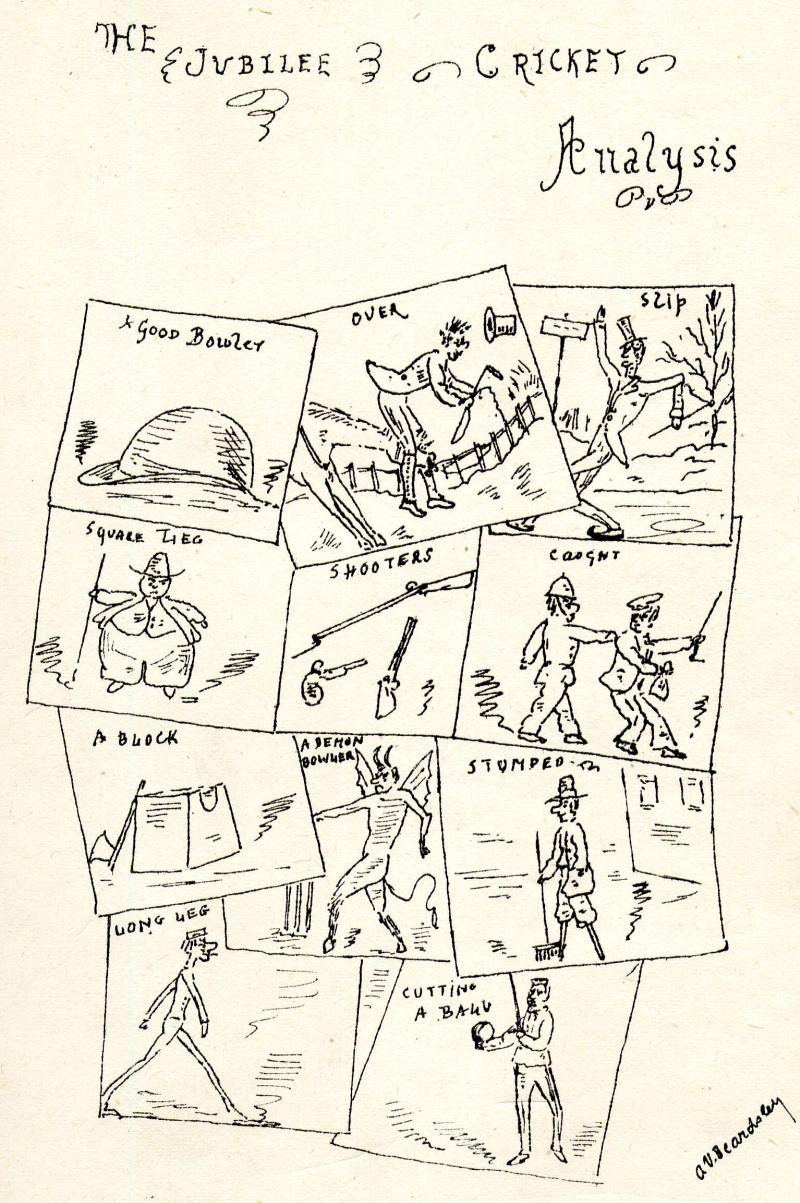 THE
JUBILEE CRICKET
Analysis
A GOOD Bowler
OVER
Slip
SQUARE LEG
SHOOTERS
CAUGHT
A BLOCK
A DEMON
BOWLER
STUMPED
LONG LEG
CUTTING
A BALL
A.V. Beardsley